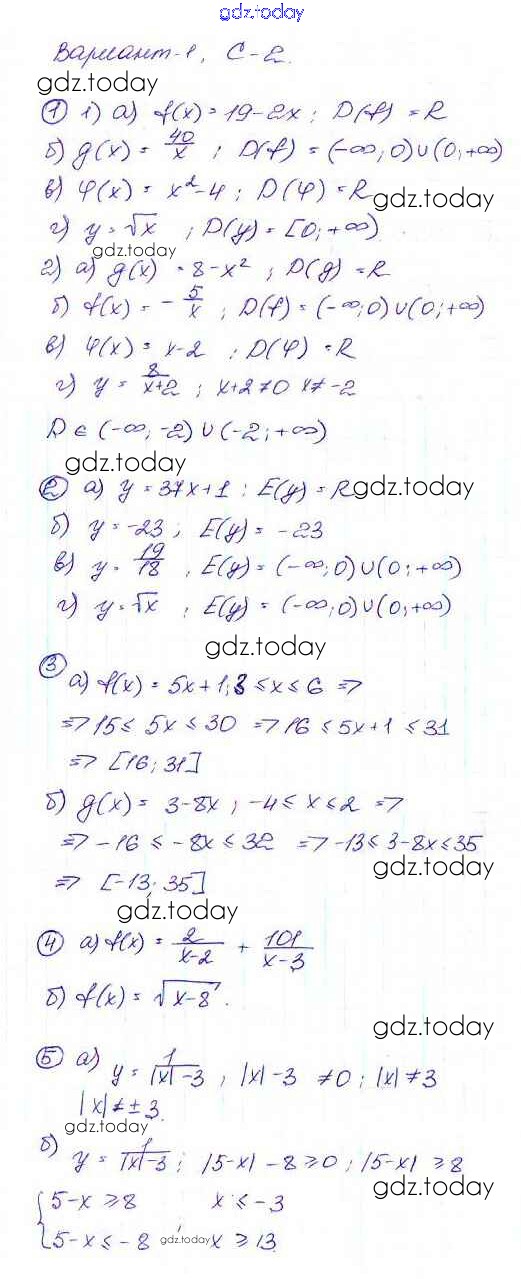 gdz.today
Вариант-1, С-2.
gdz.today
① 1) а) f(x) = 19-2x ; D(f) = R
б) g(x) = 40/x ; D(f) = (-∞; 0) ∪ (0; +∞)
в) φ(x) = x²-4 ; D(φ) = R
gdz.today
г) y = √x ; D(y) = [0; +∞)
gdz.today
2) а) g(x) = 8-x² ; D(g) = R
б) f(x) = -5/x ; D(f) = (-∞; 0) ∪ (0; +∞)
в) φ(x) = x-2 ; D(φ) = R
г) y = 8/(x+2) ; x+2≠0 x≠-2
D ∈ (-∞; -2) ∪ (-2; +∞)
gdz.today
② а) y = 37x+1 ; E(y) = R
gdz.today
б) y = -23 ; E(y) = -23
в) y = 19/18 , E(y) = (-∞; 0) ∪ (0; +∞)
г) y = √x , E(y) = (-∞; 0) ∪ (0; +∞)
gdz.today
③
а) f(x) = 5x+1; 3 ≤ x ≤ 6 =>
=> 15 ≤ 5x ≤ 30 => 16 ≤ 5x+1 ≤ 31
=> [16; 31]
б) g(x) = 3-8x ; -4 ≤ x ≤ 2 =>
=> -16 ≤ -8x ≤ 32 => -13 ≤ 3-8x ≤ 35
gdz.today
=> [-13; 35]
gdz.today
④ а) f(x) = 2/(x-2) + 101/(x-3)
б) f(x) = √(x-8).
gdz.today
⑤ а) y = 1/(|x|-3) ; |x|-3 ≠0 ; |x| ≠3
|x| ≠ ± 3.
gdz.today
б) y = 1/(|x|-3) ; |5-x| - 8 ≥ 0 ; |5-x| ≥ 8
gdz.today
{ 5-x ≥ 8 x ≤ -3
5-x ≤ -8 ; x ≥ 13.
gdz.today